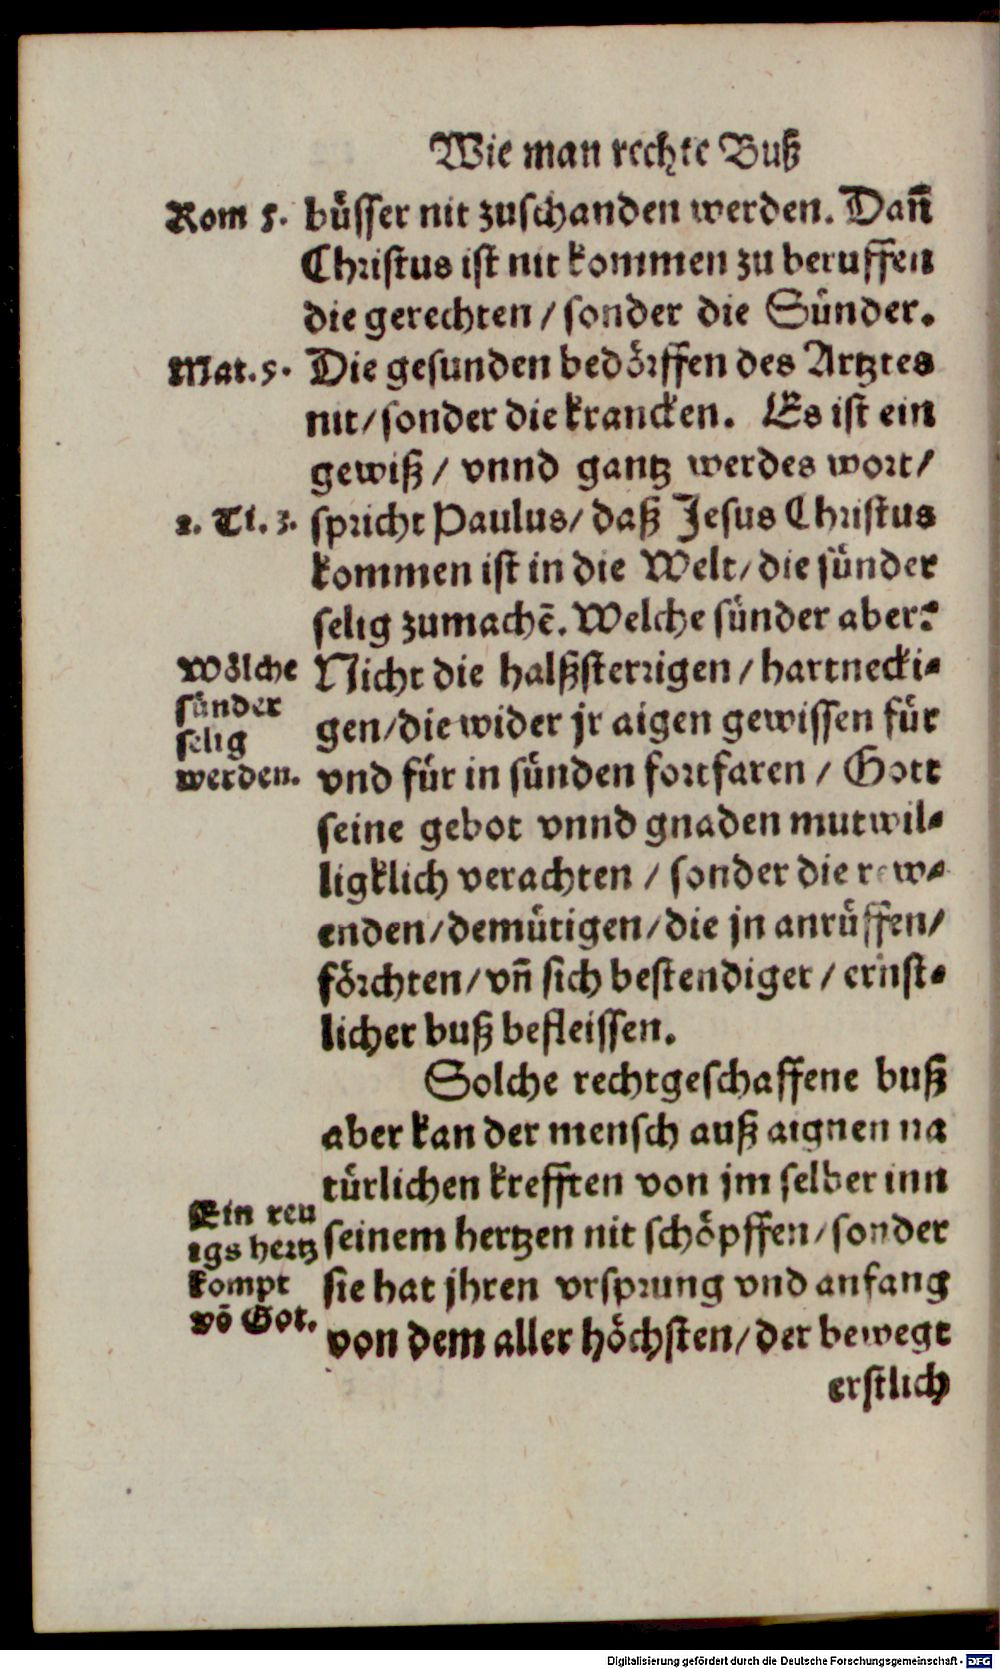 Wie man rechte Buß
Rom 5.
büsser nit zuschanden werden. Dañ
Christus ist nit kommen zu beruffen
die gerechten / sonder die Sünder.
Mat. 5.
Die gesunden bedörffen des Artztes
nit / sonder die krancken. Es ist ein
gewiß / vnnd gantz werdes wort /
1. Ti. 3.
spricht Paulus / daß Jesus Christus
kommen ist in die Welt / die sünder
selig zumachē. Welche sünder aber?
Wölche
sünder
selig
werden.
Nicht die halßsterrigen / hartnecki-
gen / die wider jr aigen gewissen für
vnd für in sünden fortfaren / Gott
seine gebot vnnd gnaden mutwil-
ligklich verachten / sonder die rew-
enden / demütigen / die jn anrüffen /
förchten / vñ sich bestendiger / ernst-
licher buß befleissen.
Solche rechtgeschaffene buß
aber kan der mensch auß aignen na
türlichen krefften von jm selber inn
Ein reu
igs hertz
kompt
vō Got.
seinem hertzen nit schöpffen / sonder
sie hat jhren vrsprung vnd anfang
von dem aller höchsten / der bewegt
erstlich
Digitalisierung gefördert durch die Deutsche Forschungsgemeinschaft - DFG